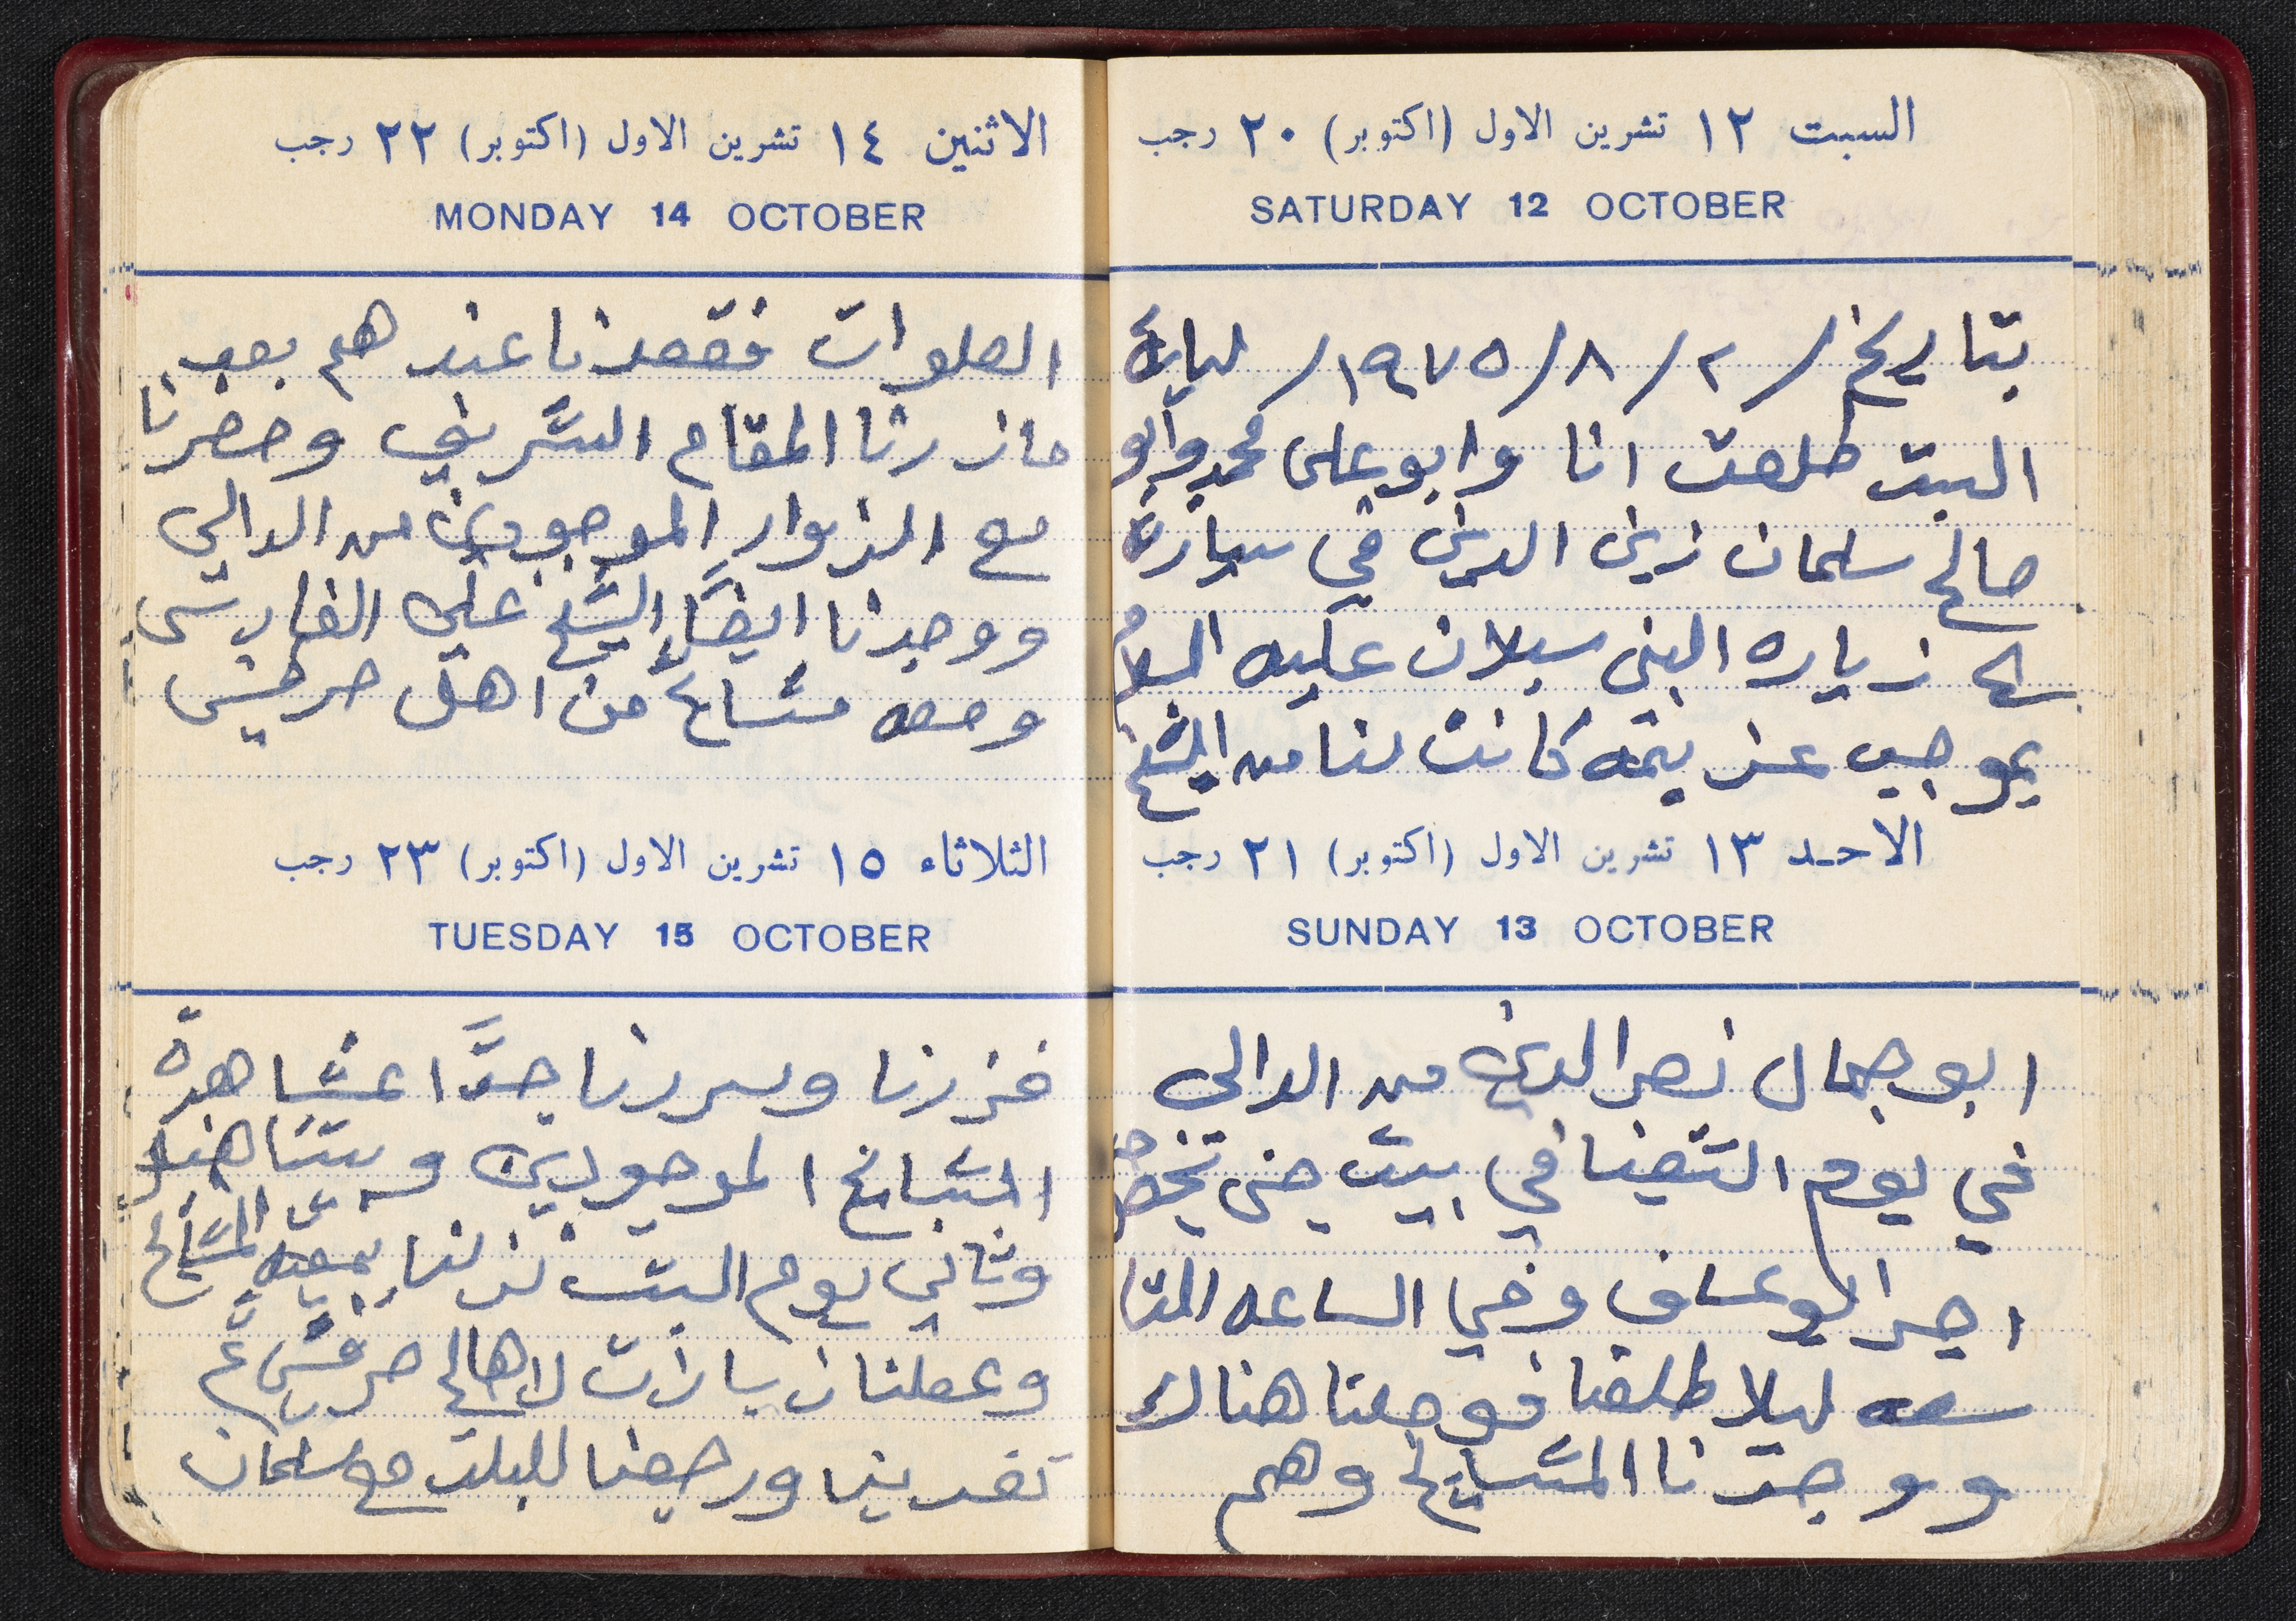 السبت ١٢ تشرين الاول (اكتوبر) ٢٠ رجب
SATURDAY 12 OCTOBER
بتاريخ / ٢ / ٨ / ١٩٧٥ / ليلة
السبت طلعت انا وابو علي محمد وابو
صالح سلمان زين الدين في سيارة
الى زياره النبي سبلان عليه السلام
بموجب عزيمه كانت لنا من الشيخ
الاحد ١٣ تشرين الاول (اكتوبر) ٢١ رجب
SUNDAY 13 OCTOBER
ابو جمال نصر الدين من الدالي
في يوم التقينا في بيت جن
ابو عساف وفي الساعه التا
سعه ليلا طلعنا فوصلنا هناك
ووجدنا المشايخ وهم
الاثنين ١٤ تشرين الاول (اكتوبر) ٢٢ رجب
MONDAY 14 OCTOBER
الصلوات فقعدنا عند هم بعد
ما زرنا المقام الشريف وحضرنا
مع الزوار الموجودين من الدالي
ووجدنا ايضاً الشيخ علي الفارس
ومعه مشايخ من اهل حرفيش
الثلاثاء ١٥ تشرين الاول (اكتوبر) ٢٣ رجب
TUESDAY 15 OCTOBER
فزرنا وسررنا جدًا بمشاهدة
المشايخ الموجودين وبتنا هناك
وثاني يوم السبت نزلنا بمعيه المشايخ
وعملنا زيارات لاهالي حرفيش ثم
تغدينا ورجعنا للبلد مع سلمان